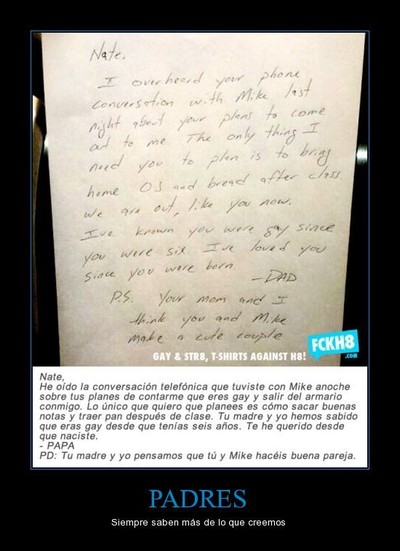 Nate,
I overheard your phone
conversation with Mike last
night about your plans to come
out to me. The only thing I
need you to plan is to bring
home OJ and bread after class.
We are out, like you now.
I've known you were gay since
you were six. I've loved you
since you were born.
- DAD
P.S. Your mom and I
think you and Mike
make a cute couple
GAY & STR8, T-SHIRTS AGAINST H8!
FCKH8
.com
Nate,
He oído la conversación telefónica que tuviste con Mike anoche
sobre tus planes de contarme que eres gay y salir del armario
conmigo. Lo único que quiero que planees es cómo sacar buenas
notas y traer pan después de clase. Tu madre y yo hemos sabido
que eras gay desde que tenías seis años. Te he querido desde
que naciste.
- PAPA
PD: Tu madre y yo pensamos que tú y Mike hacéis buena pareja.
PADRES
Siempre saben más de lo que creemos